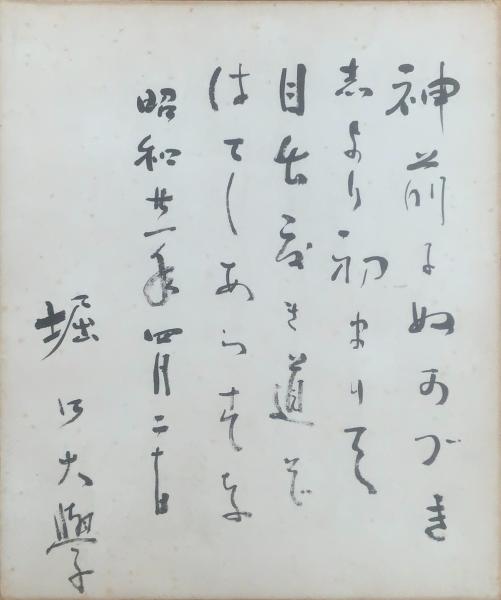 神前にぬかづき
志より初まりて
目出度き道そ
はてしあらすな
昭和廿一年四月二十日
堀口大學